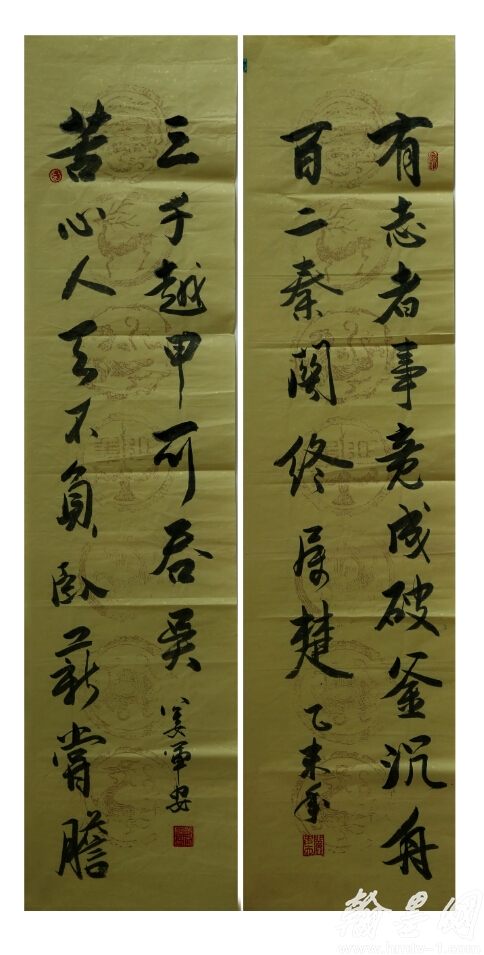 有志者事竟成破釜沉舟
百二秦関终属楚
乙未年
苦心人天不負卧薪嘗膽
三千越甲可吞吴
姜軍安
翰墨网